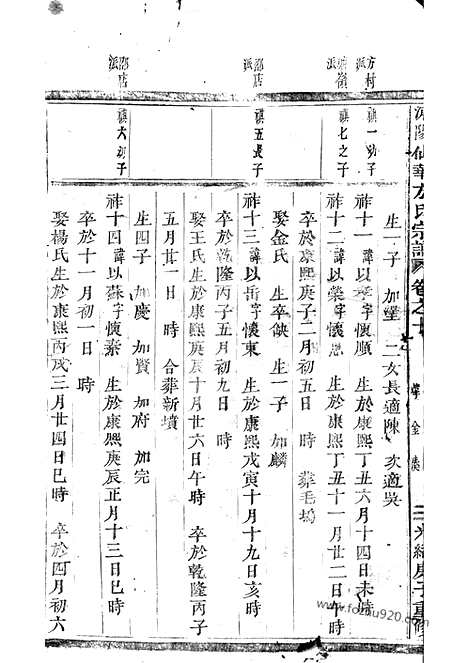 浦陽仙華方氏宗譜 卷之十
三 光緒庚子重修
方村派
禩一幼子
禩七之子
邵店派
禩五長子
邵店派
禩六幼子
生一子 加璧 二女長適陳 次適吳
祚十一 諱以孝字懷順 生於康熙丁丑六月十四日未時
祚十二 諱以榮字懷恩 生於康熙丁丑十一月廿二日午時
卒於康熙庚子二月初五日 時 葬毛塢
娶金氏 生卒缺 生一子 加麟
祚十三 諱以岳字懷東 生於康熙戊寅十月十九日亥時
卒於乾隆丙子五月初九日 時
娶王氏生於康熙庚辰十月廿六日午時 卒於乾隆丙子
五月廿一日 時 合葬新墳
生四子 加慶 加賓 加府 加完
祚十四 諱以蘇字懷素 生於康熙庚辰正月十三日巳時
卒於十一月初一日 時
娶楊氏生於康熙丙戌三月廿四日巳時 卒於四月初六
www.fozhu920.com